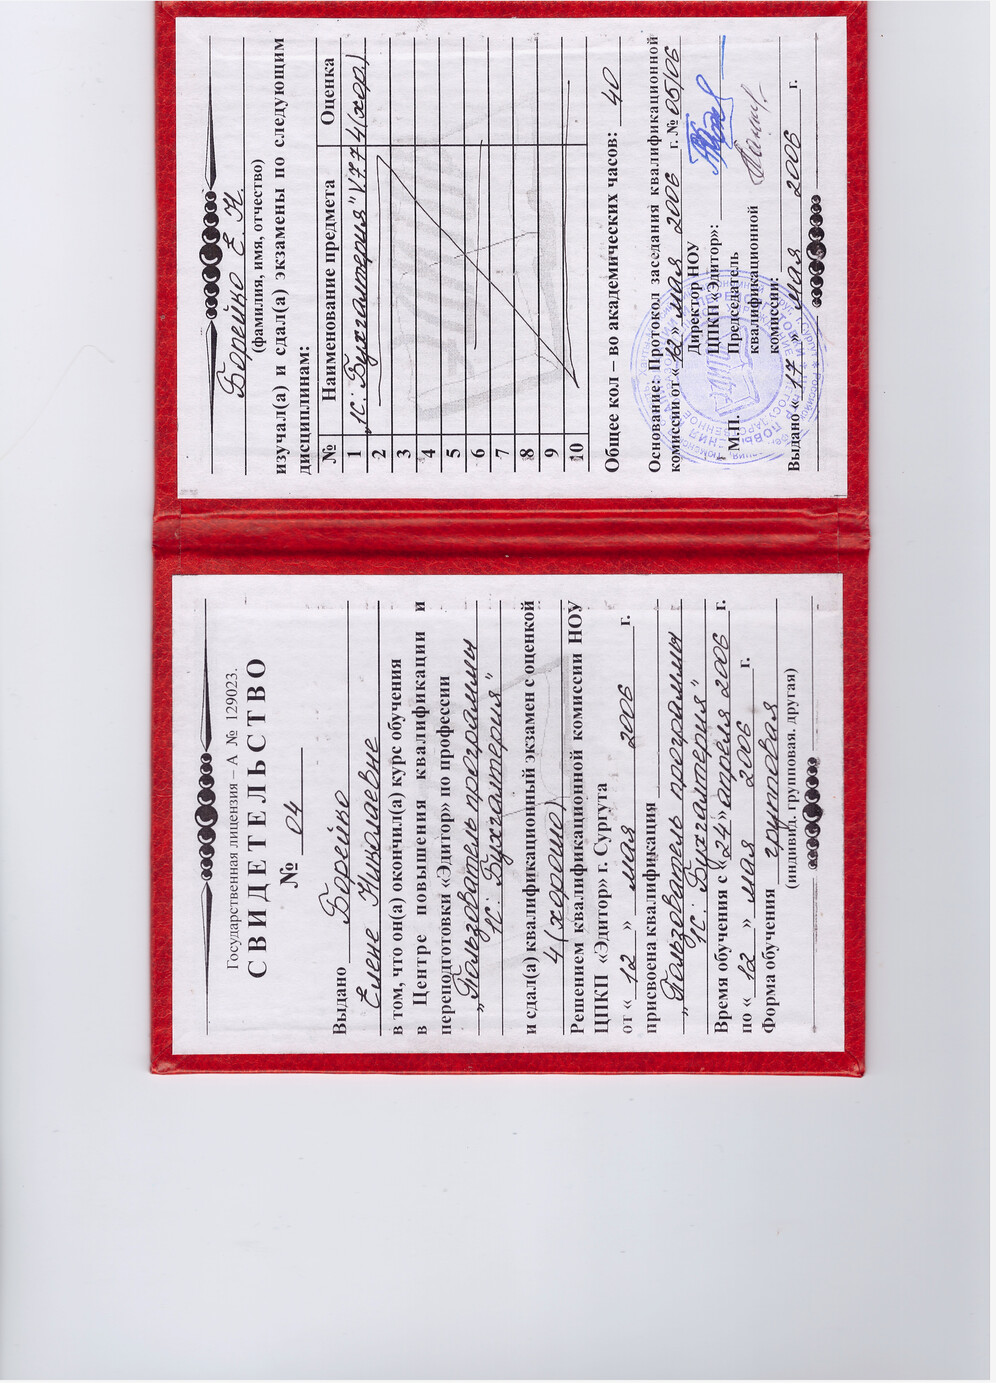 Государственная лицензия – А № 129023.
СВИДЕТЕЛЬСТВО
№ 04
Выдано Борейко
Елене Николаевне
в том, что он(а) окончил(а) курс обучения
в Центре повышения квалификации и
переподготовки «Эдитор» по профессии
„Пользователь программы
1С: Бухгалтерия"
и сдал(а) квалификационный экзамен с оценкой
4 (хорошо)
Решением квалификационной комиссии НОУ
ЦПКП «Эдитор» г. Сургута
от « 12 » мая 2006 г.
присвоена квалификация
„Пользователь программы
1С: Бухгалтерия"
Время обучения с «24» апреля 2006 г.
по « 12 » мая 2006 г.
Форма обучения групповая
(индивид. групповая. другая)
Борейко Е. Н.
(фамилия, имя, отчество)
изучал(а) и сдал(а) экзамены по следующим
дисциплинам:
№ Наименование предмета Оценка
1 „1С: Бухгалтерия" V.7.7 4 (хор.)
2
3
4
5
6
7
8
9
10
Общее кол – во академических часов: 40
Основание: Протокол заседания квалификационной
комиссии от «12» мая 2006 г. № 05/06
Директор НОУ
ЦПКП «Эдитор»:
Председатель
квалификационной
комиссии:
М.П.
Выдано « 17 » мая 2006 г.